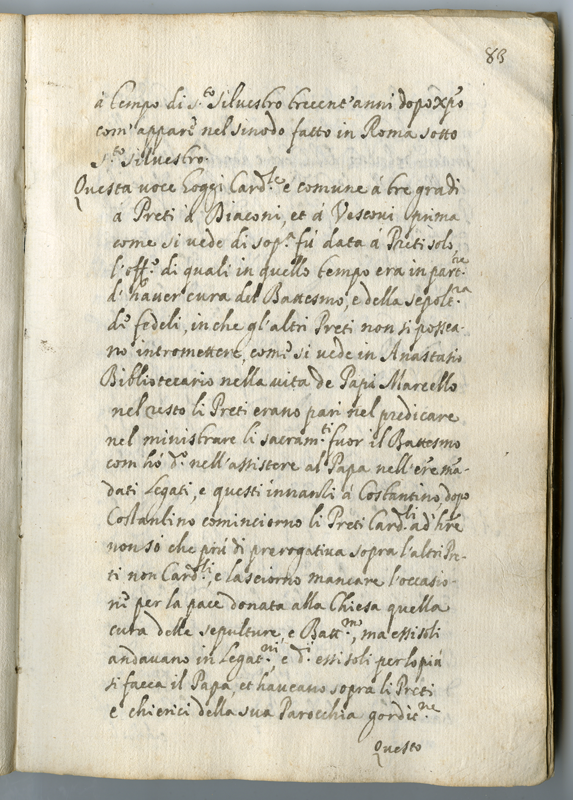 83
à tempo di s.to siluestro trecent'anni dopo xp̃o
com' appare nel sinodo fatto in Roma sotto
s.to siluestro
Questa uoce hoggi Card.le e comune à tre gradi
à Preti à Diaconi, et à Vescoui prima
come si uede di sop.a fú data à Preti solo
l'off.o di quali in quello tempo era in part.re
d'hauer cura del Battesmo, e della sepolt.ra
di fedeli, in che gl'altri Preti non si possea-
no intromettere, come si uede in Anastasio
Bibliotecario nella uita de Papi Marcello
nel resto li Preti erano pari nel predicare
nel ministrare li sacram.ti fuor il Battesmo
com hó d.o nell'assistere al Papa nell'ere mã-
dati Legati, e questi innanti à Costantino dopo
Costantino cominciorno li Preti Card.li ad hr̃e
non só che piú di prerogatiua sopra l'altri Pre-
ti non Card.li, e lasciorno mancare l'occasio-
ne per la pace donata alla Chiesa quella
cura delle sepulture, e Batt.mo, ma essi soli
andauano in Legat.ni, e di essi soli per lo piú
si facea il Papa, et haueano sopra li Preti
e chierici della sua Parocchia
Questo